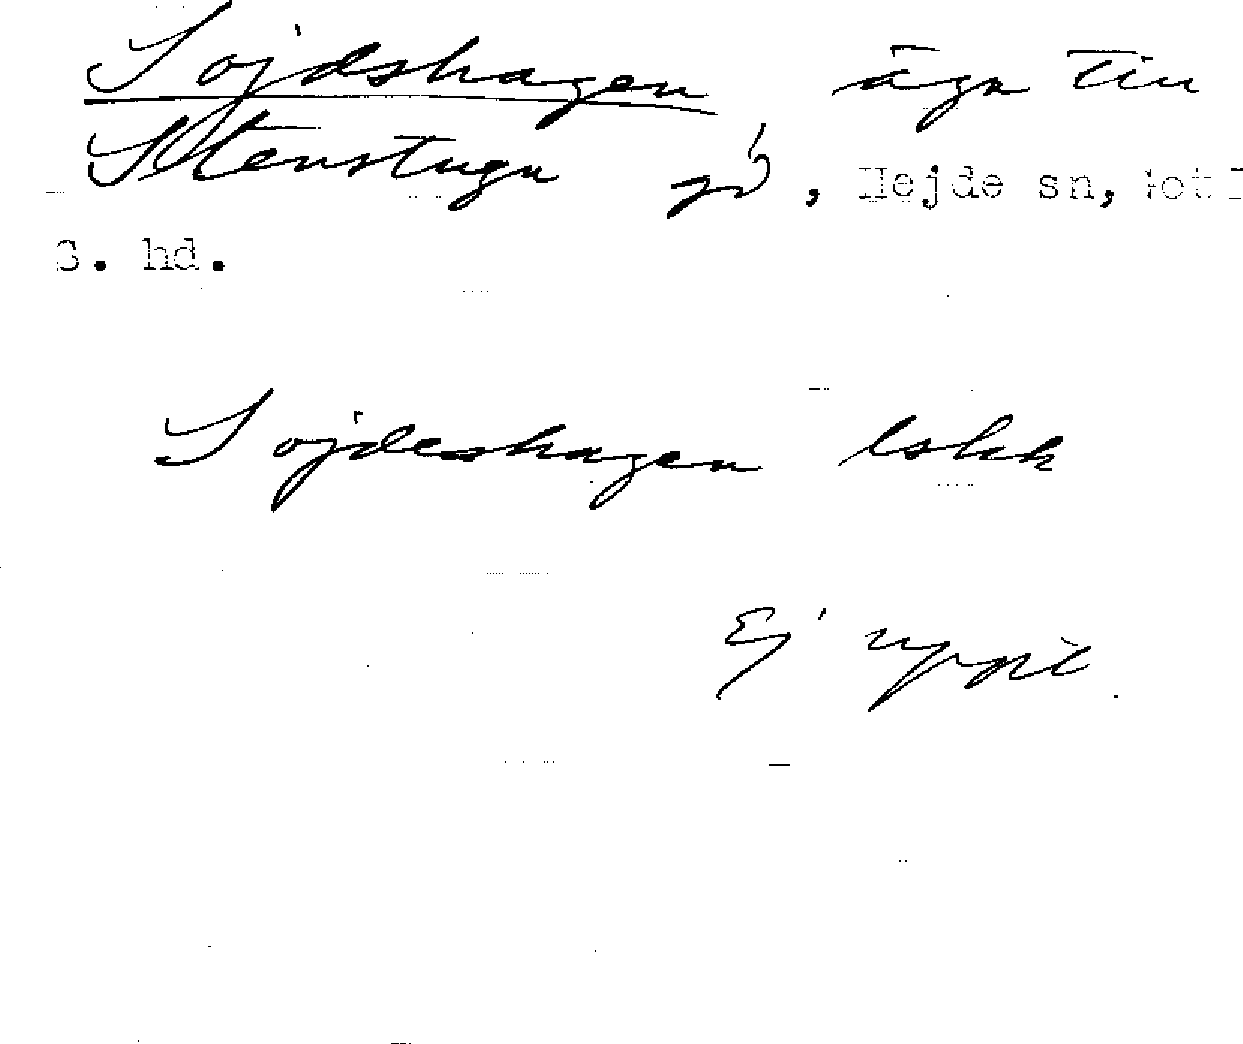 Sojdshagen, äga till
Stenstugu gd, Hejde sn, Gotl
S. hd.
Sojdeshagen lskk
Ej uppt.